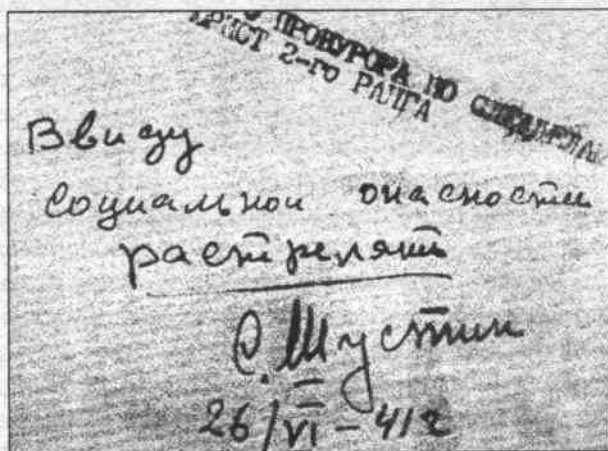 ПРОКУРОРА ПО СПЕЦДЕЛАМ
ЮРИСТ 2-го РАНГА
Ввиду
социальной опасности
растрелять
С. Шустин
26/VI – 41 г